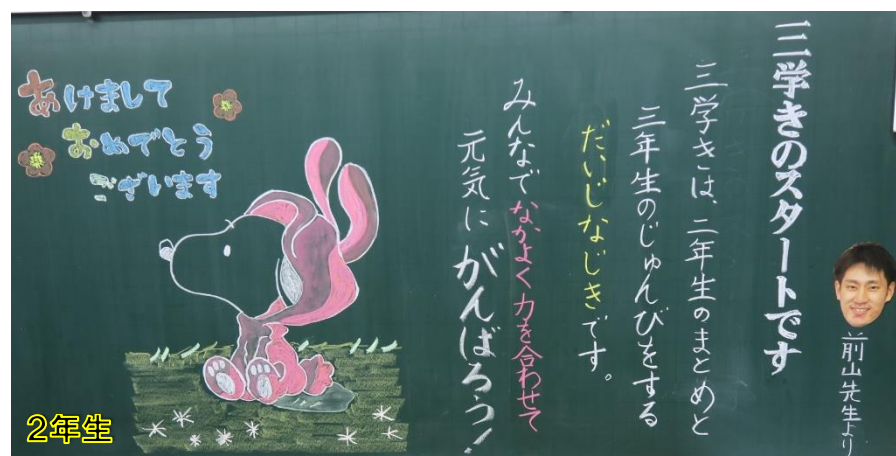 三学きのスタートです
三学きは、二年生のまとめと
三年生のじゅんびをする
だいじなじきです。
みんなでなかよく力を合わせて
元気にがんばろう!
前山先生より
あけまして
おめでとう
ございます
2年生